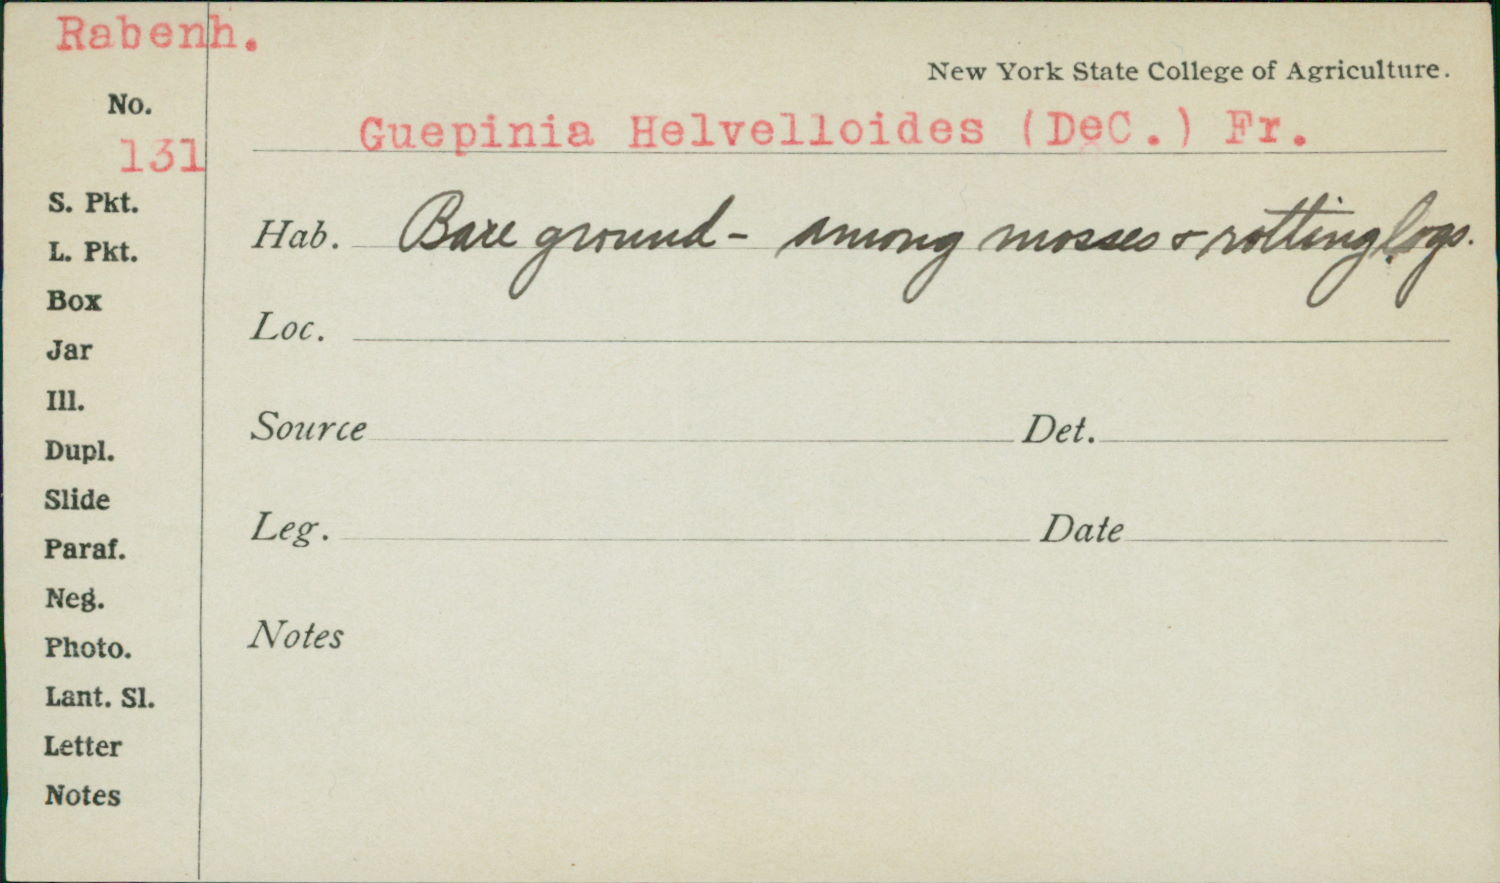 Rabenh.
New York State College of Agriculture.
No.
131
Guepinia Helvelloides (DeC.) Fr.
S. Pkt.
L. Pkt.
Box
Jar
Ill.
Dupl.
Slide
Paraf.
Neg.
Photo.
Lant. Sl.
Letter
Notes
Hab. Bare ground - among mosses & rotting logs.
Loc.
Source Det.
Leg. Date
Notes